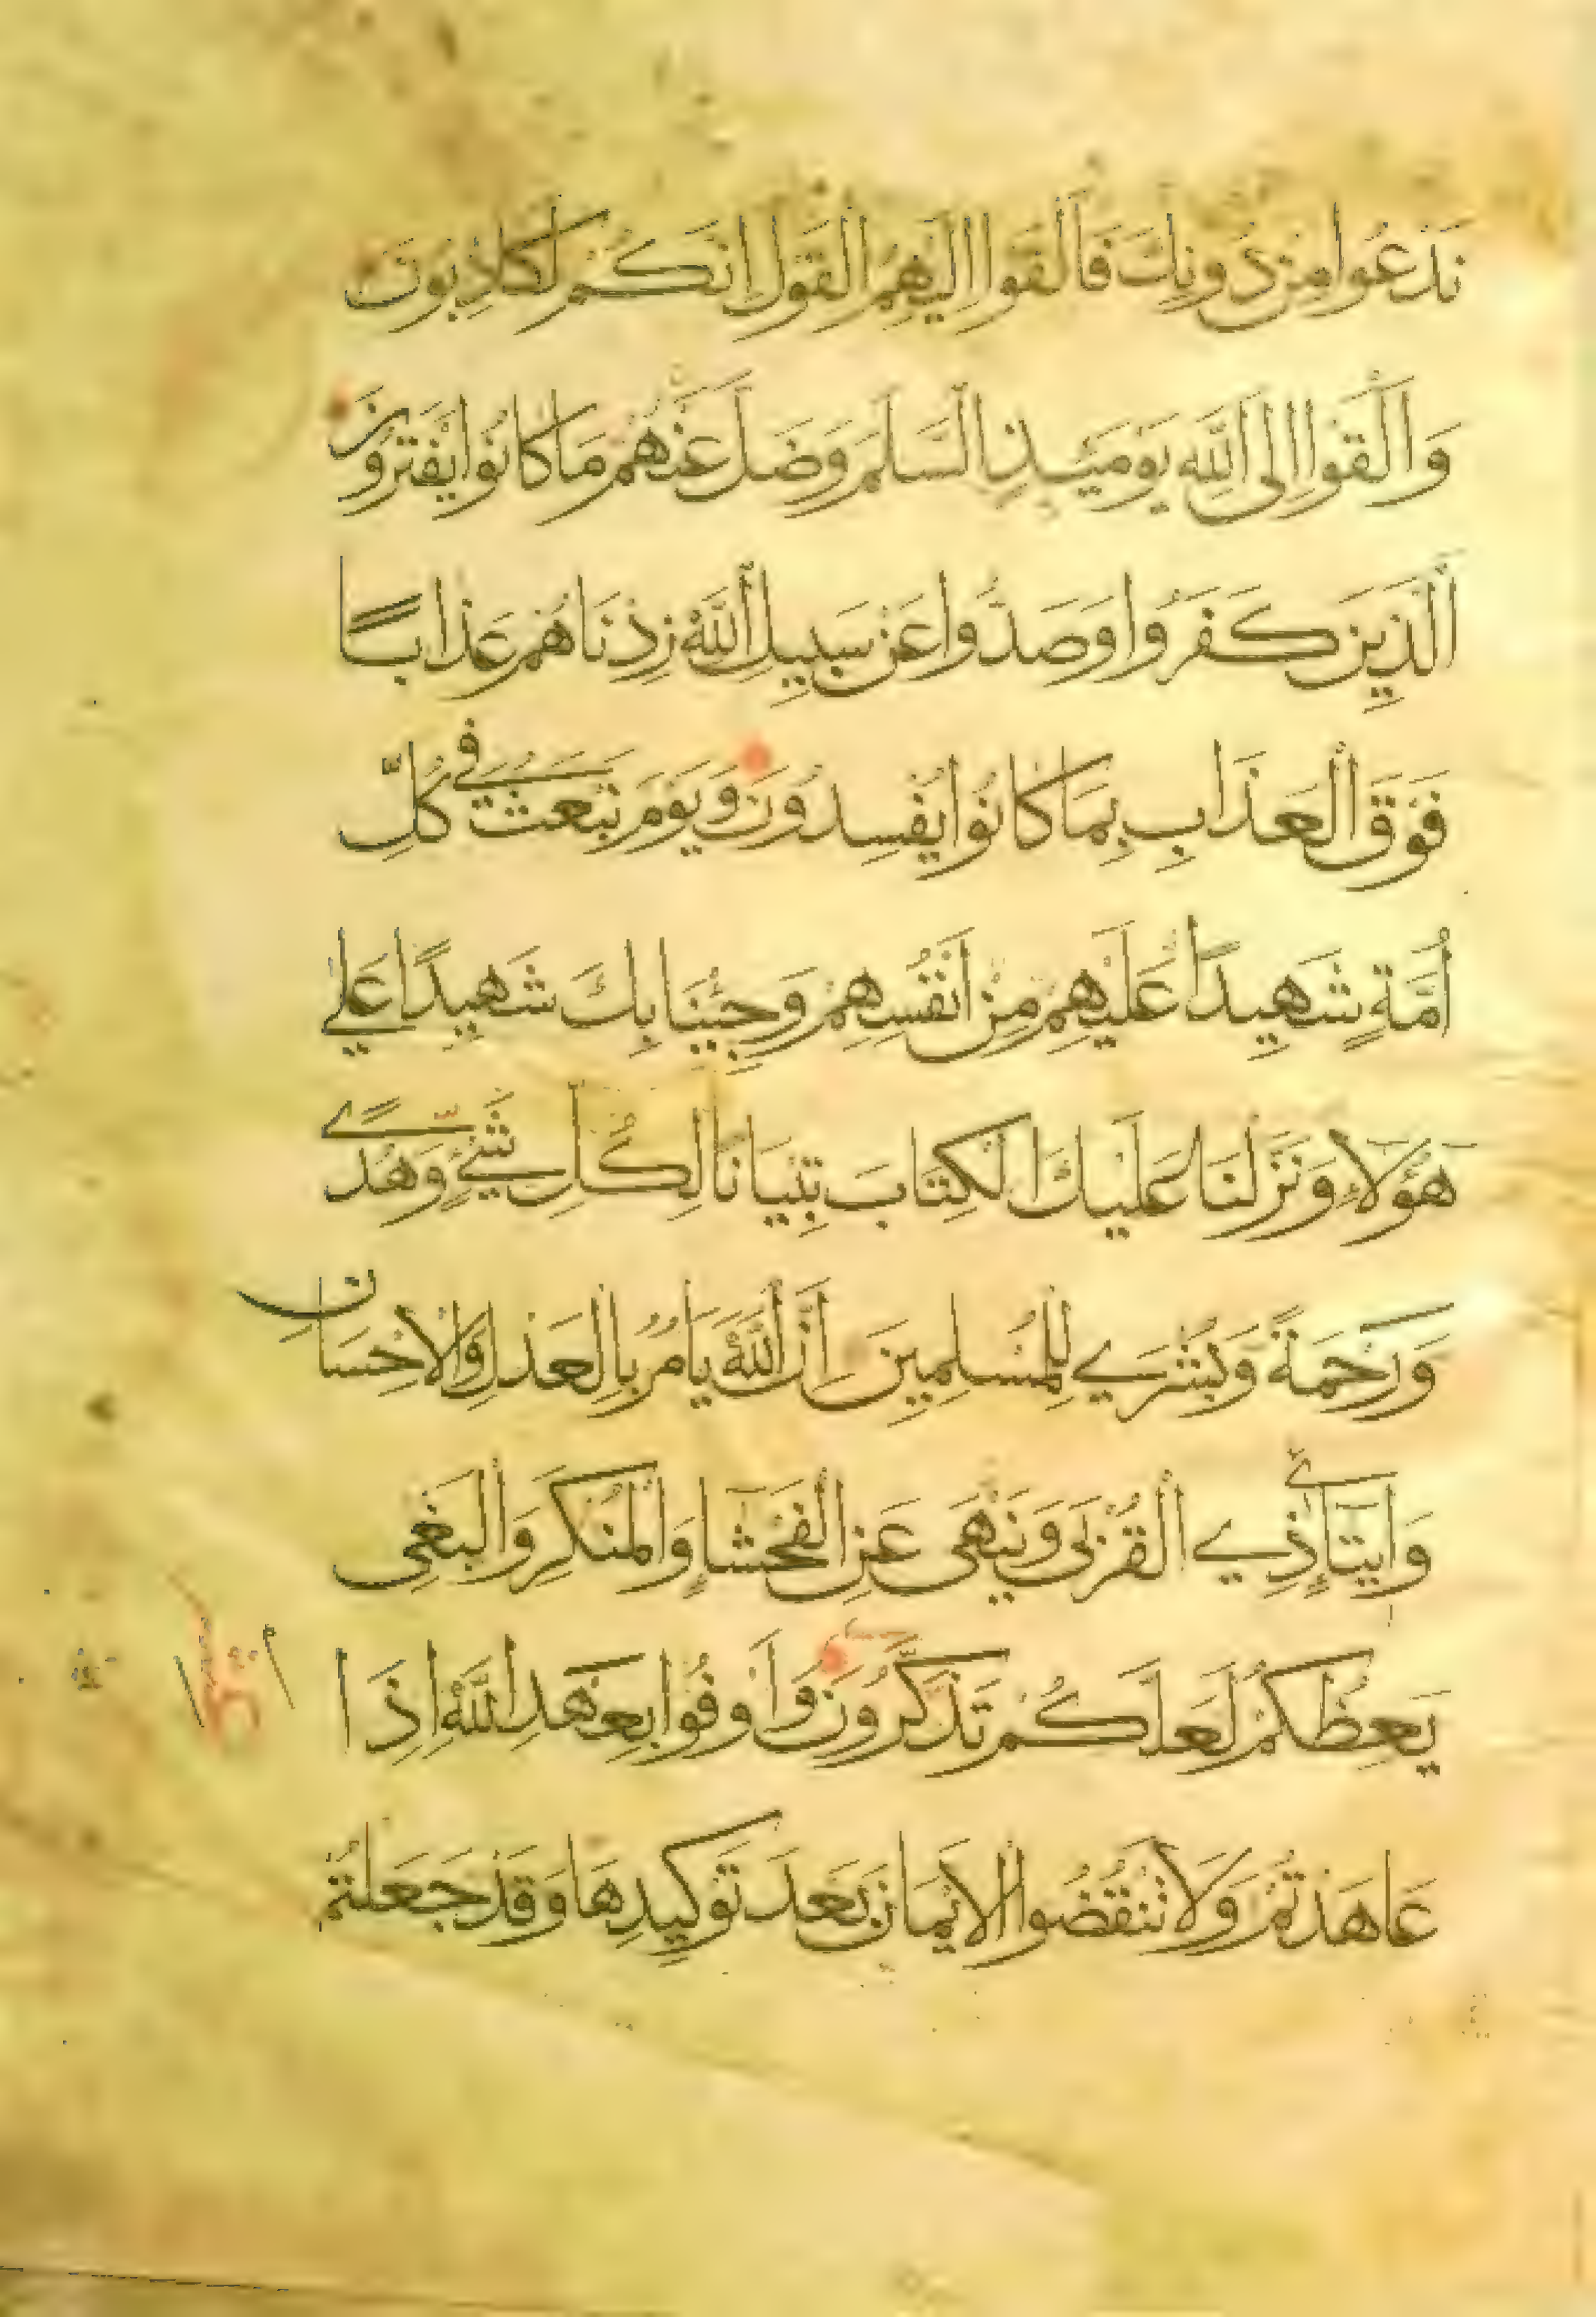 نَدْعُوا مِنْ دُونِكَ فَأَلْقَوْا إِلَيْهِمُ الْقَوْلَ إِنَّكُمْ لَكَاذِبُونَ
وَأَلْقَوْا إِلَى اللَّهِ يَوْمَيِٕذٍ السَّلَمَ وَضَلَّ عَنْهُمْ مَا كَانُوا يَفْتَرُونَ
الَّذِينَ كَفَرُوا وَصَدُّوا عَنْ سَبِيلِ اللَّهِ زِدْنَاهُمْ عَذَابًا
فَوْقَ الْعَذَابِ بِمَا كَانُوا يُفْسِدُونَ وَيَوْمَ نَبْعَثُ فِي كُلِّ
أُمَّةٍ شَهِيدًا عَلَيْهِمْ مِنْ أَنْفُسِهِمْ وَجِئْنَا بِكَ شَهِيدًا عَلَى
هَؤُلَاءِ وَنَزَّلْنَا عَلَيْكَ الْكِتَابَ تِبْيَانًا لِكُلِّ شَيْءٍ وَهُدًى
وَرَحْمَةً وَبُشْرَى لِلْمُسْلِمِينَ إِنَّ اللَّهَ يَأْمُرُ بِالْعَدْلِ وَالْإِحْسَانِ
وَإِيتَآئِ ذِي الْقُرْبَى وَيَنْهَى عَنِ الْفَحْشَآءِ وَالْمُنْكَرِ وَالْبَغْيِ
يَعِظُكُمْ لَعَلَّكُمْ تَذَكَّرُونَ وَأَوْفُوا بِعَهْدِ اللَّهِ إِذَا
عَاهَدْتُمْ وَلَا تَنْقُضُوا الْأَيْمَانَ بَعْدَ تَوْكِيدِهَا وَقَدْ جَعَلْتُمُ